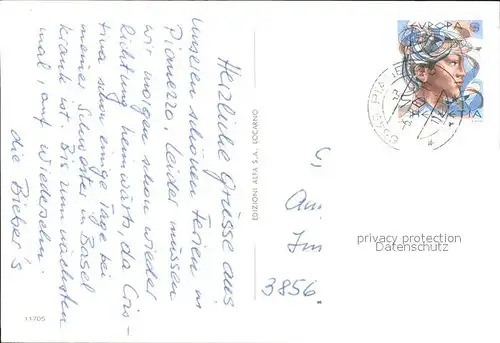 Herzliche Grüsse aus
unseren schönen Ferien in
Pianezzo, leider müssen
wir morgen schon wieder
Richtung heimwärts, da Cris-
tina schon einige Tage bei
meiner Schwester in Basel
krank ist. Bis zum nächsten
mal, auf wiedersehn
die Bieber's
11705
EDIZIONI ALFA S.A. LOCARNO
EUROPA
HELVETIA
Im
3856
privacy protection
Datenschutz